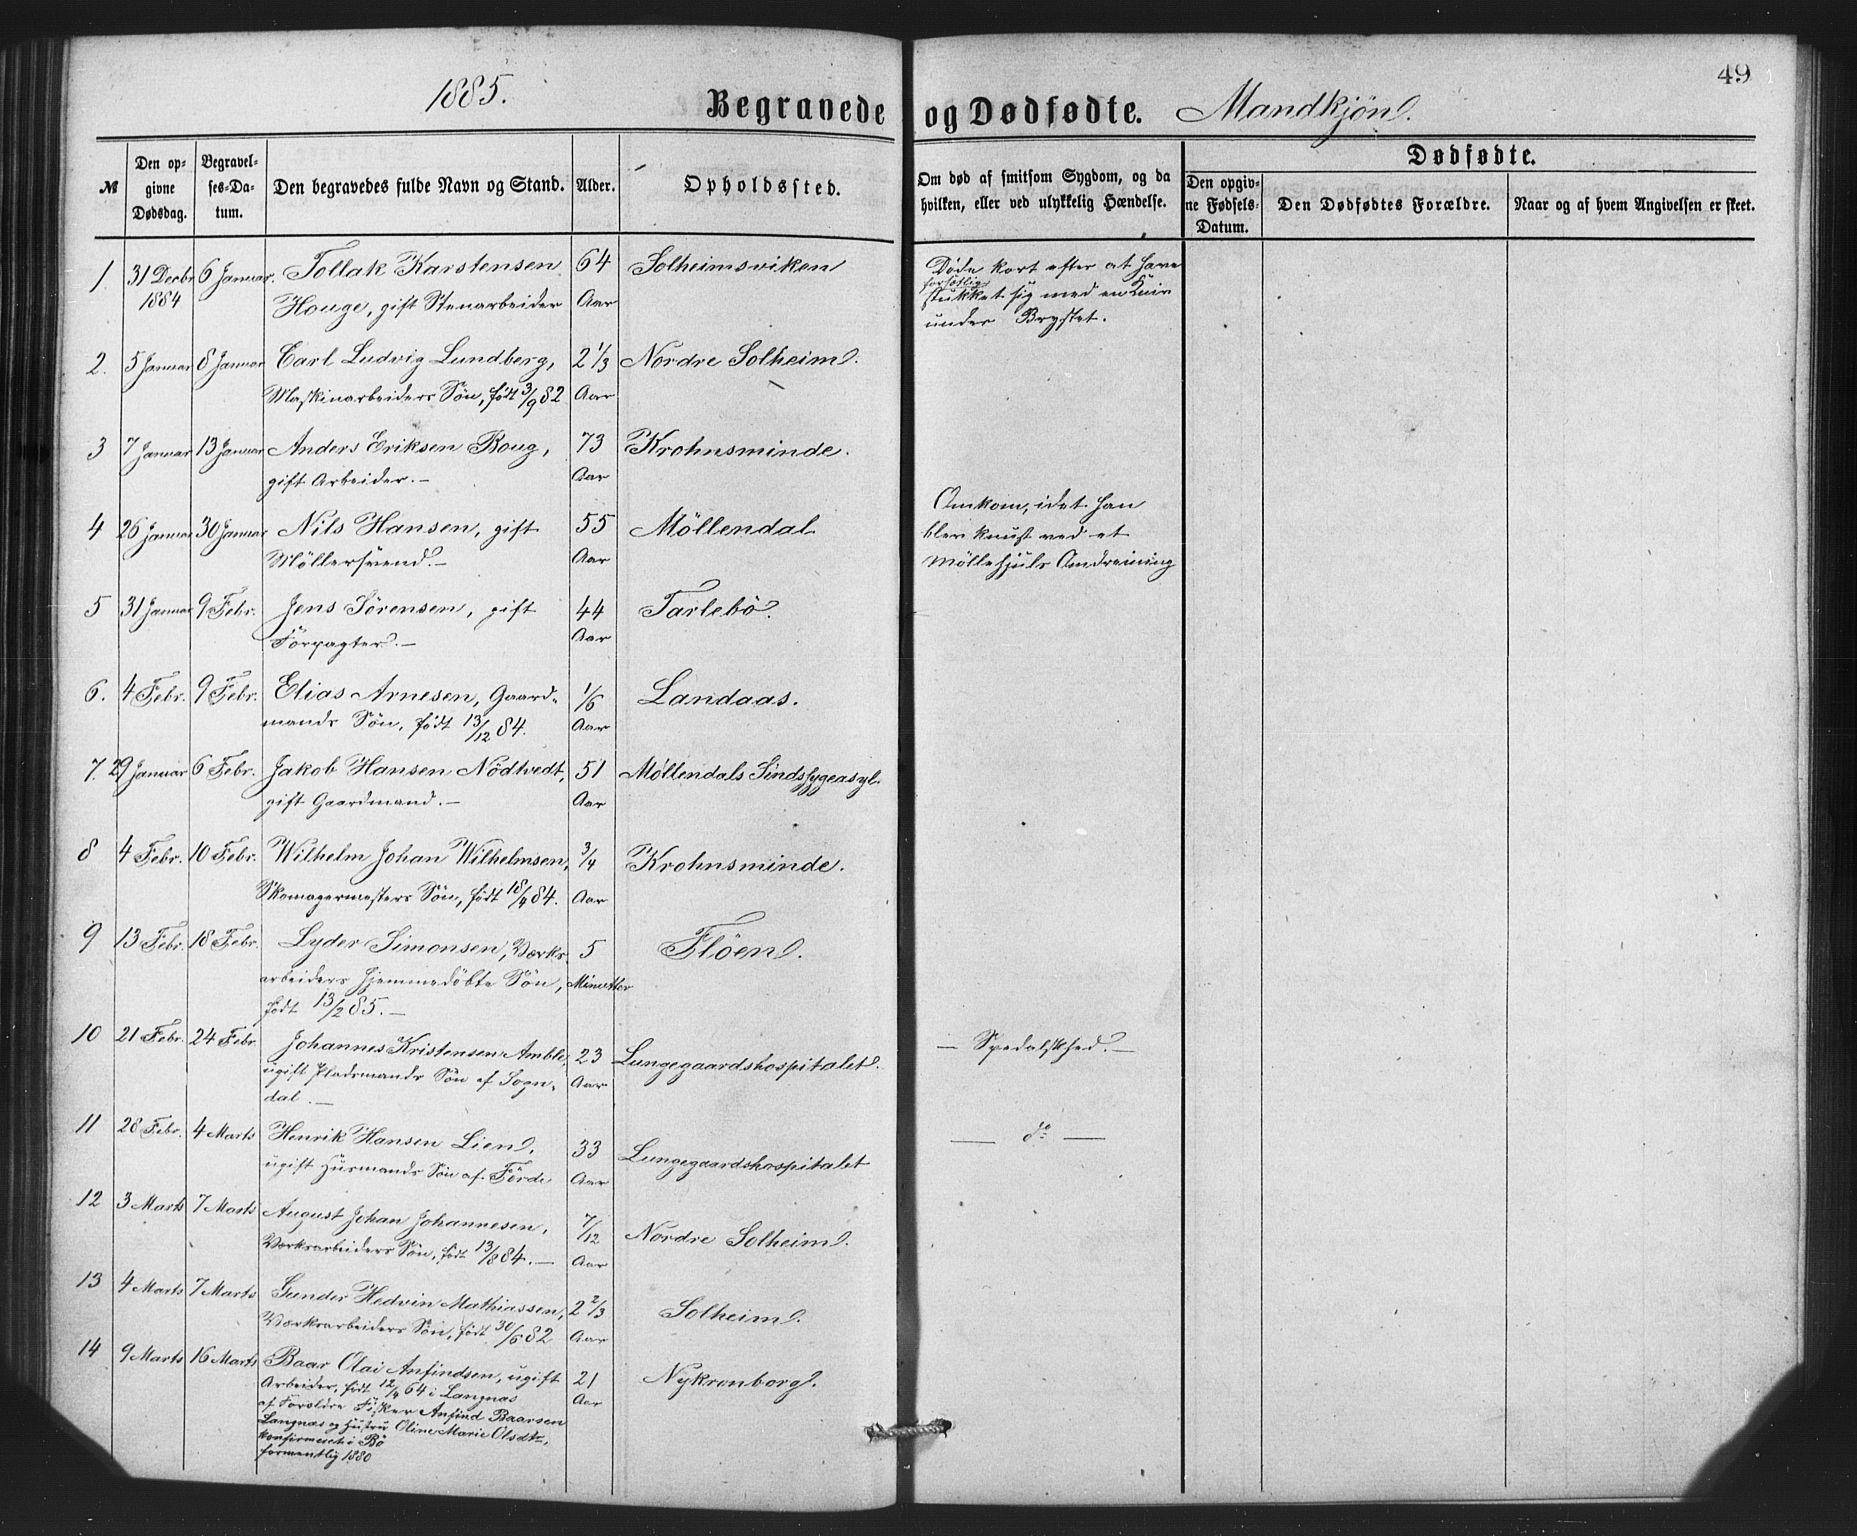 49
1885.
Begravede og Dødfødte. Mandkjön.
№
Den op-
givne
Dødsdag.
Begravel-
ses-Da-
tum.
Den begravedes fulde Navn og Stand.
Alder.
Opholdssted.
Om død af smitsom Sygdom, og da
hvilken, eller ved ulykkelig Hændelse.
Dødfødte.
Den opgiv-
ne Fødsels-
Datum.
Den Dødfødtes Forældre.
Naar og af hvem Angivelsen er skeet.
1 31 Decbr 6 Januar. Tollak Karstensen 64 Solheimsviken Døde kort efter at have
1884 Houge, gift Stenarbeider Aar forsætlig
stukket sig med en Kniv
under Brystet.
2. 5 Januar 8 Januar Carl Ludvig Lundberg, 2 1/3 Nordre Solheim.
Maskinarbeiders Sön, födt 3/9 82 Aar
3 7 Januar 13 Januar Anders Eriksen Boug, 73 Krohnsminde.
gift Arbeider. — Aar
4 26 Januar 30 Januar Nils Hansen, gift 55 Möllendal Omkom, idet han
Möllersvend. — Aar blev knust ved et
Möllehjuls Omdreining
5 31 Januar 9 Febr. Jens Sörensen, gift 44 Tarlebö.
Forpagter. — Aar
6. 4 Febr. 9 Febr. Elias Arnesen, Gaard- 1/6 Landaas.
mands Sön, födt 13/12 84. Aar
7. 29 Januar 6 Febr. Jakob Hansen Nödtvedt, 51 Møllendals Sindssygeasyl.
gift Gaardmand. — Aar
8 4 Febr. 10 Febr. Wilhelm Johan Wilhelmsen, 3/4 Krohnsminde.
Skomagermesters Sön, födt 18/4 84. Aar
9 13 Febr. 18 Febr. Lyder Simonsen, Værks- 5 Flöen.
arbeiders hjemmedöbte Sön, Minutter
födt 13/2 85. —
10 21 Febr. 24 Febr. Johannes Kristensen Amble, 23 Lungegaardshospitalet. — Spedalskhed. —
ugift Pladsmands Sön af Sogn- Aar
dal. —
11 28 Febr. 4 Marts Henrik Hansen Lien, 33 Lungegaardshospitalet — do —
ugift Husmands Sön af Förde Aar
12 3 Marts 7 Marts August Johan Johannesen, 7/12 Nordre Solheim.
Værksarbeiders Sön, födt 13/8 84. — Aar
13 4 Marts 7 Marts Gunder Hedvin Mathiassen, 2 2/3 Solheim.
Værksarbeiders Sön, födt 30/6 82 Aar
14 9 Marts 16 Marts Baar Olai Anfindsen, ugift 21 Nykronborg.
Arbeider, födt 12/4 64 i Langnæs Aar
af Forældre Fisker Anfind Baarsen
Langnæs og Hustru Oline Marie Olsdtr,
konfirmeret i Bö
formentlig 1880